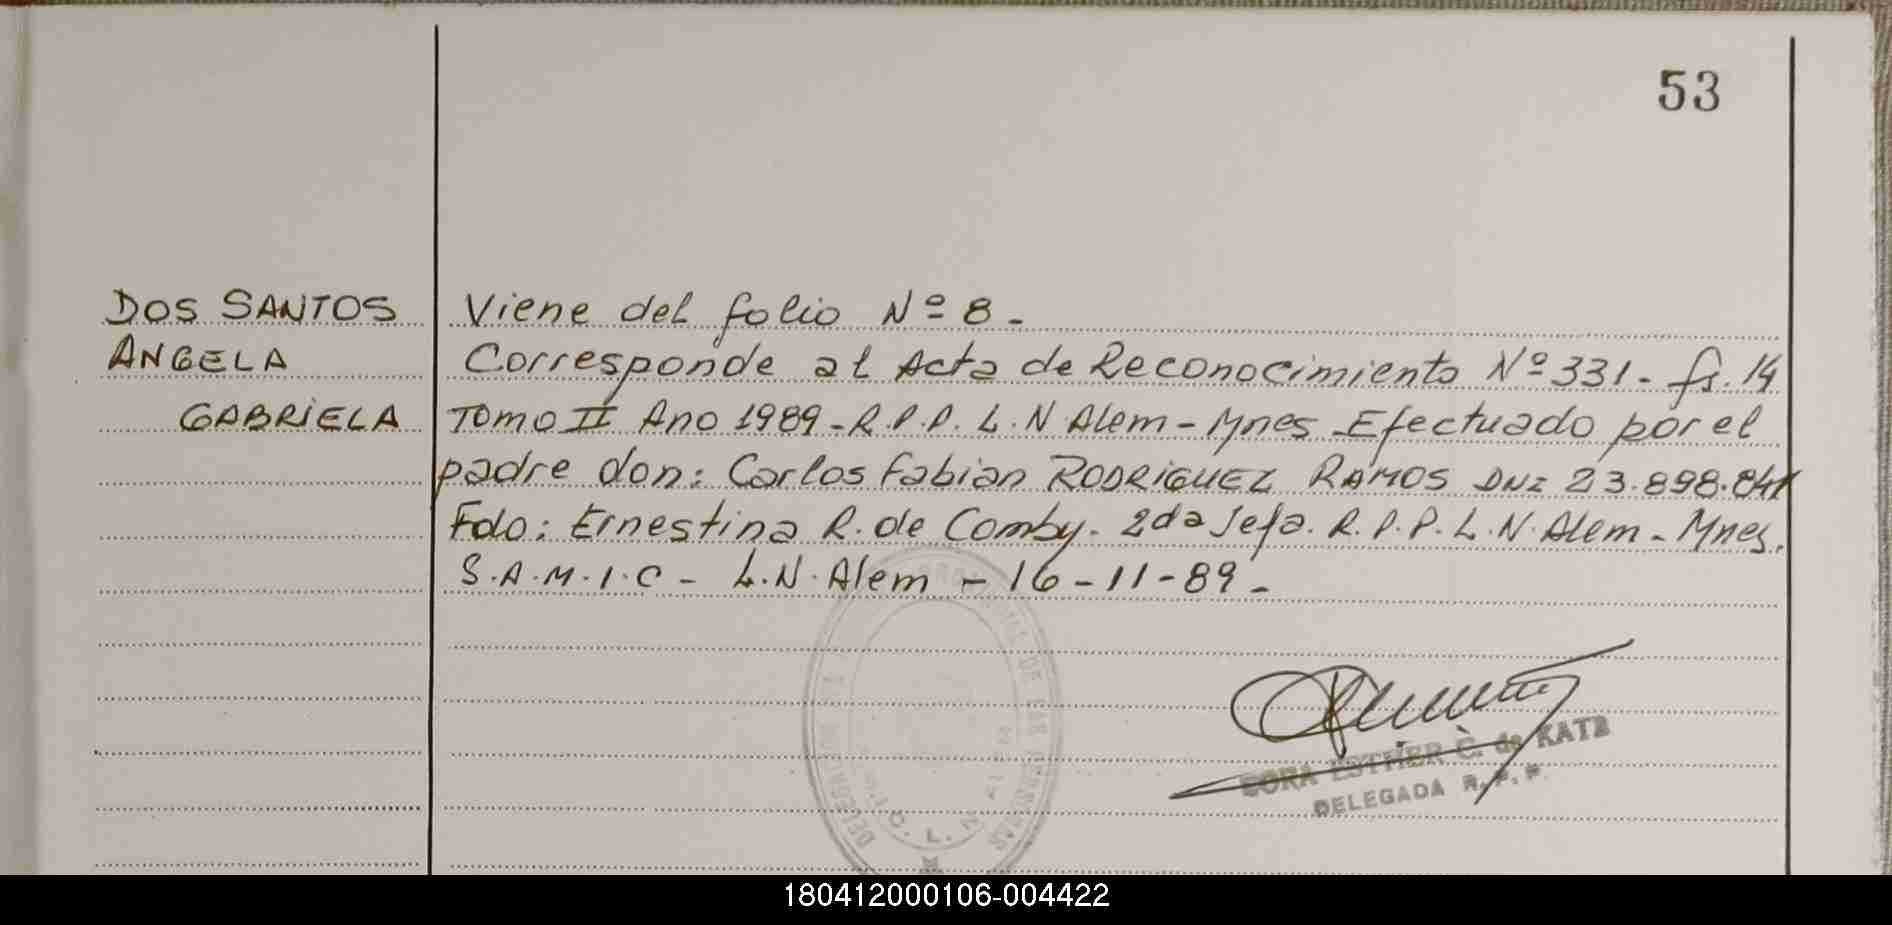 53
DOS SANTOS
ANGELA
GABRIELA
Viene del folio Nº 8 -
Corresponde al Acta de Reconocimiento Nº 331 - fs. 14
Tomo II Ano 1989 - R.P.P. L.N Alem - Mnes Efectuado por el
padre don: Carlos Fabian RODRIGUEZ RAMOS DNI 23.898.841
Fdo: Ernestina R. de Comby. 2da Jefa. R.P.P. L.N. Alem - Mnes.
S.A.M.I.C - L.N. Alem - 16-11-89 -
DORA ESTHER C. de KATZ
DELEGADA R.P.P
DELEGACION DE LAS PERSONAS
L. N. ALEM
180412000106-004422